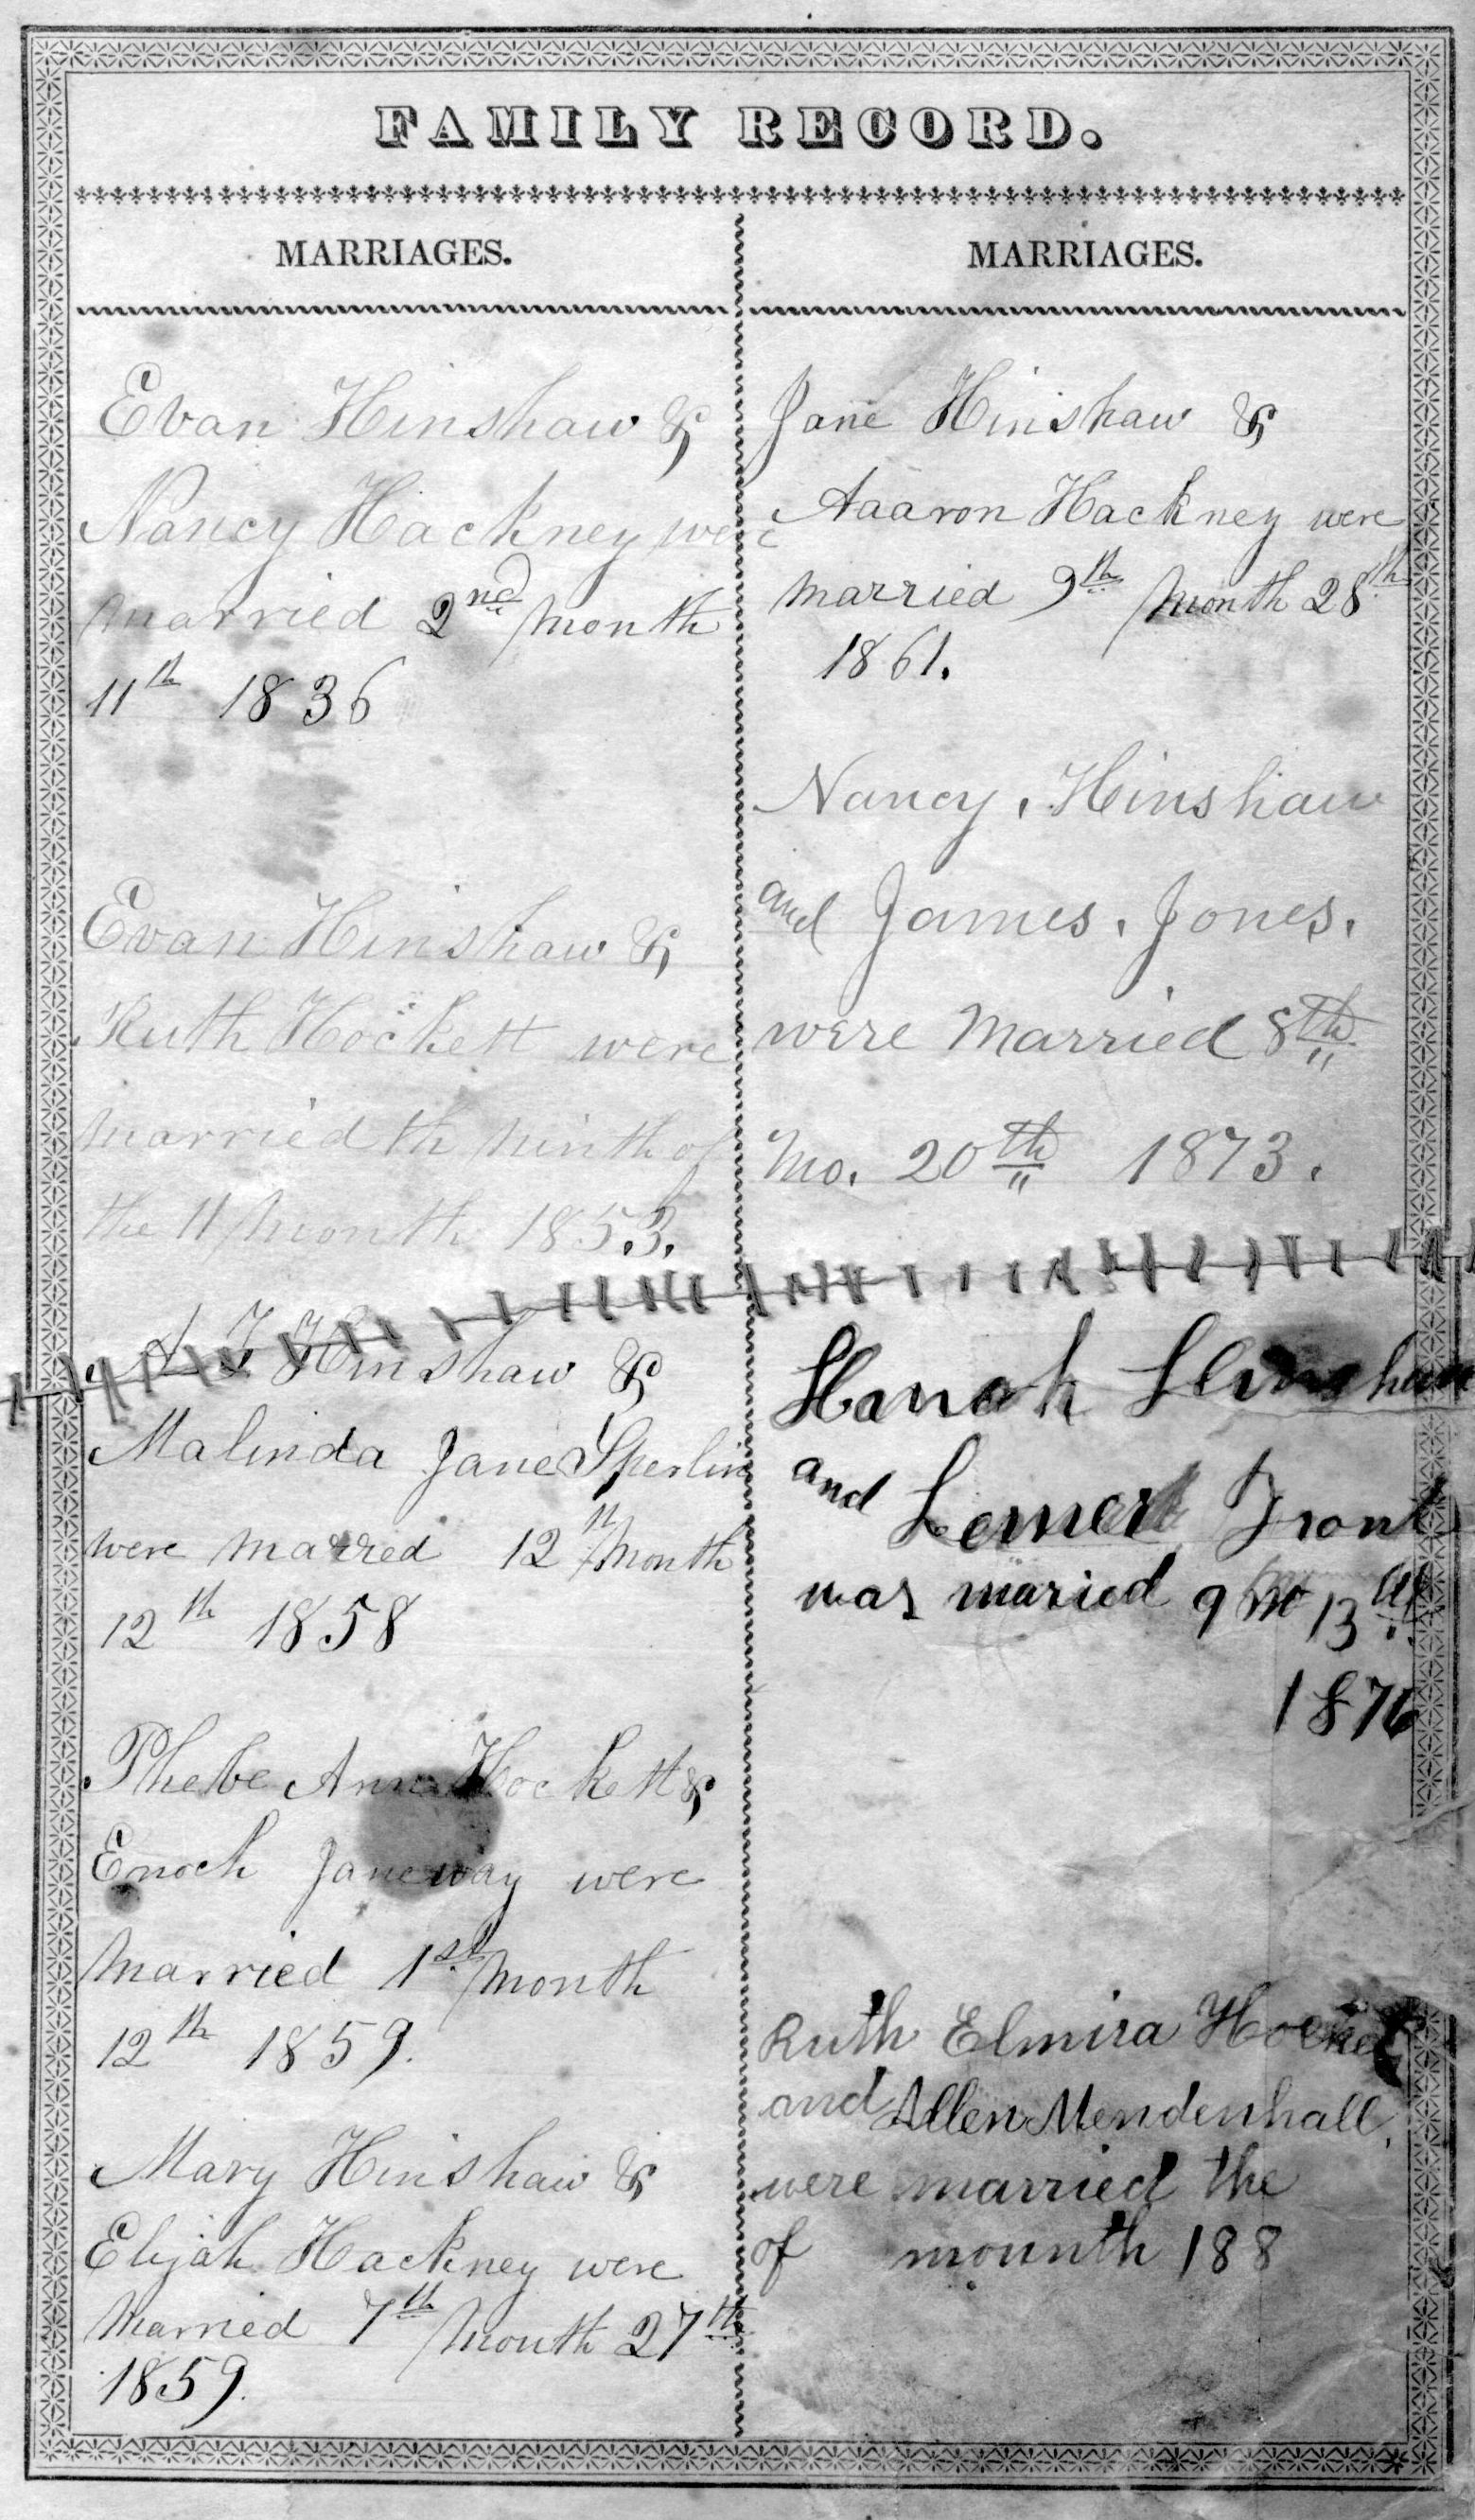 FAMILY RECORD.
MARRIAGES.
Evan Hinshaw &
Nancy Hackney were
married 2nd month
11th 1836
Evan Hinshaw &
Ruth Hockett were
married th ninth of
the 11 month 1853.
Hinshaw &
Malinda Jane Sperlin
were married 12th month
12th 1858
Phebe Ann Hockett &
Enoch Janeway were
married 1st month
12th 1859.
Mary Hinshaw &
Elijah Hackney were
married 7th month 27th
1859.
MARRIAGES.
Jane Hinshaw &
Aaaron Hackney were
married 9th month 28th
1861.
Nancy. Hinshaw
and James. Jones.
were Married 8th
Mo. 20th 1873.
Hanah Hinshaw
and
was maried 9 Mo 13th
1876
Ruth Elmira
and Allen Mendenhall,
were married the
of mounth 188